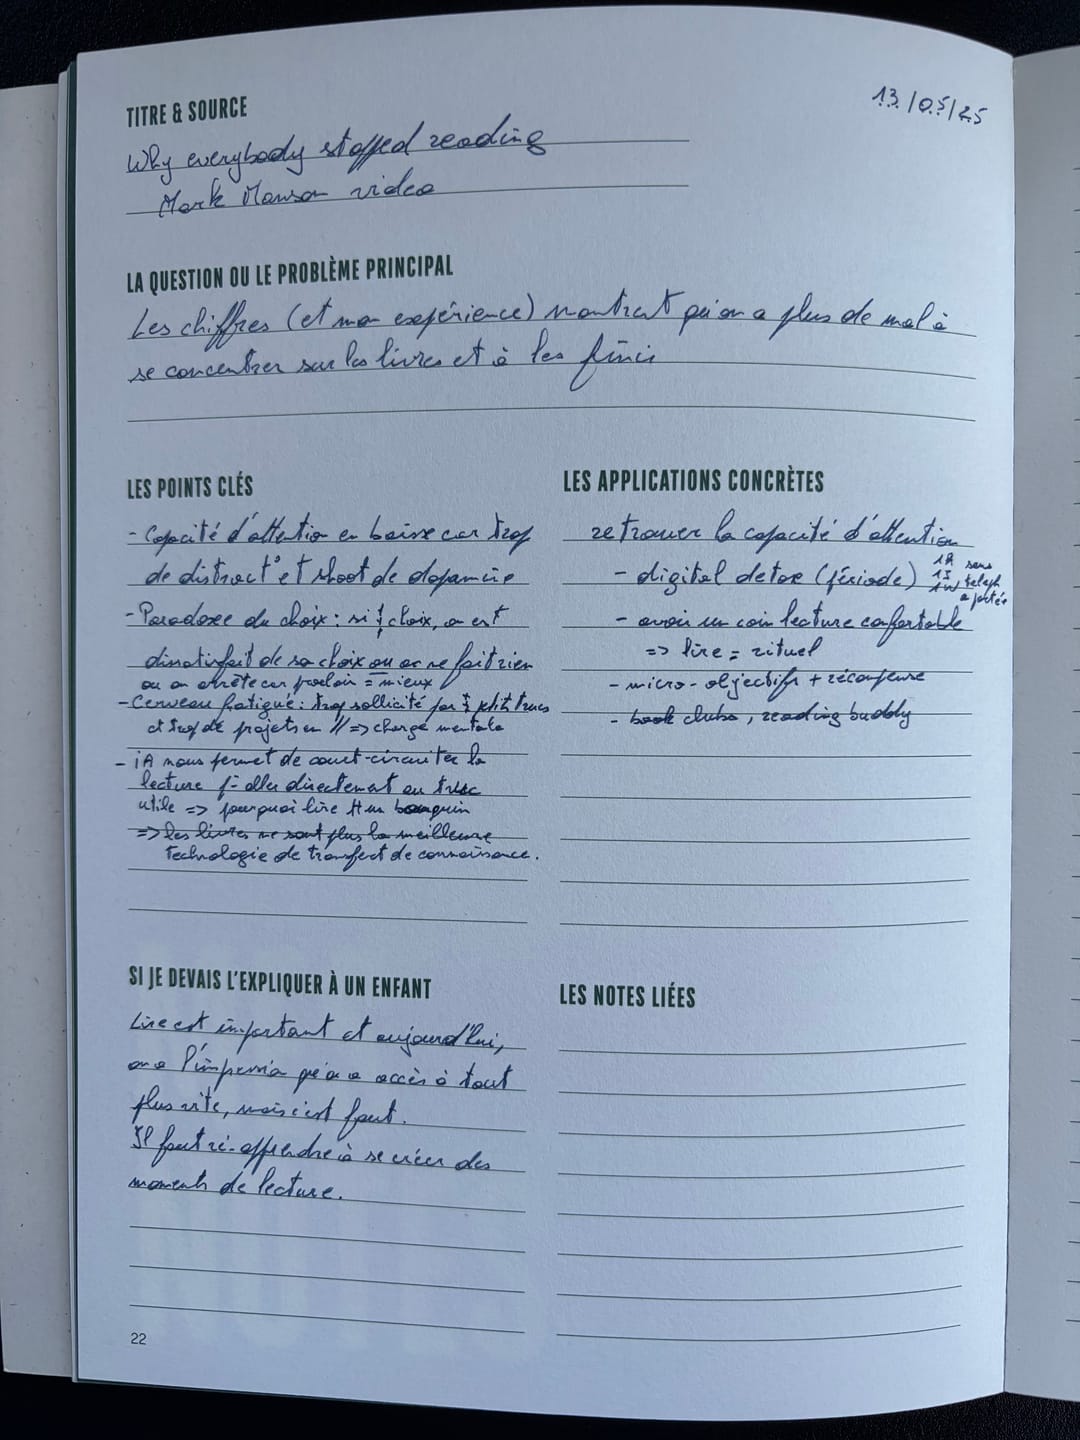 13/05/25
TITRE & SOURCE
Why everybody stopped reading
Mark Manson video
LA QUESTION OU LE PROBLÈME PRINCIPAL
Les chiffres (et mon expérience) montrent qu'on a plus de mal à
se concentrer sur les livres et à les finir
LES POINTS CLÉS
- Capacité d'attention en baisse car trop
de distract° et shoot de dopamine
- Paradoxe du choix : si choix, on est
dissatisfait de son choix ou on ne fait rien
ou on arrête car = mieux
- Cerveau fatigué : trop sollicité par petits trucs
et trop de projets en // => charge mentale
- iA nous permet de court-circuiter la
lecture aller directement au truc
utile => pourquoi lire un bouquin
=> les livres ne sont plus la meilleure
technologie de transfert de connaissance.
LES APPLICATIONS CONCRÈTES
retrouver la capacité d'attention
- digital detox (période) 1H sans
1J téleph
1W à portée
- avoir un coin lecture confortable
=> lire = rituel
- micro-objectifs + récompense
- book clubs, reading buddy
SI JE DEVAIS L'EXPLIQUER À UN ENFANT
Lire est important et aujourd'hui,
on a l'impression qu'on a accès à tout
plus vite, mais c'est faux.
Il faut ré-apprendre à se créer des
moments de lecture.
LES NOTES LIÉES
22